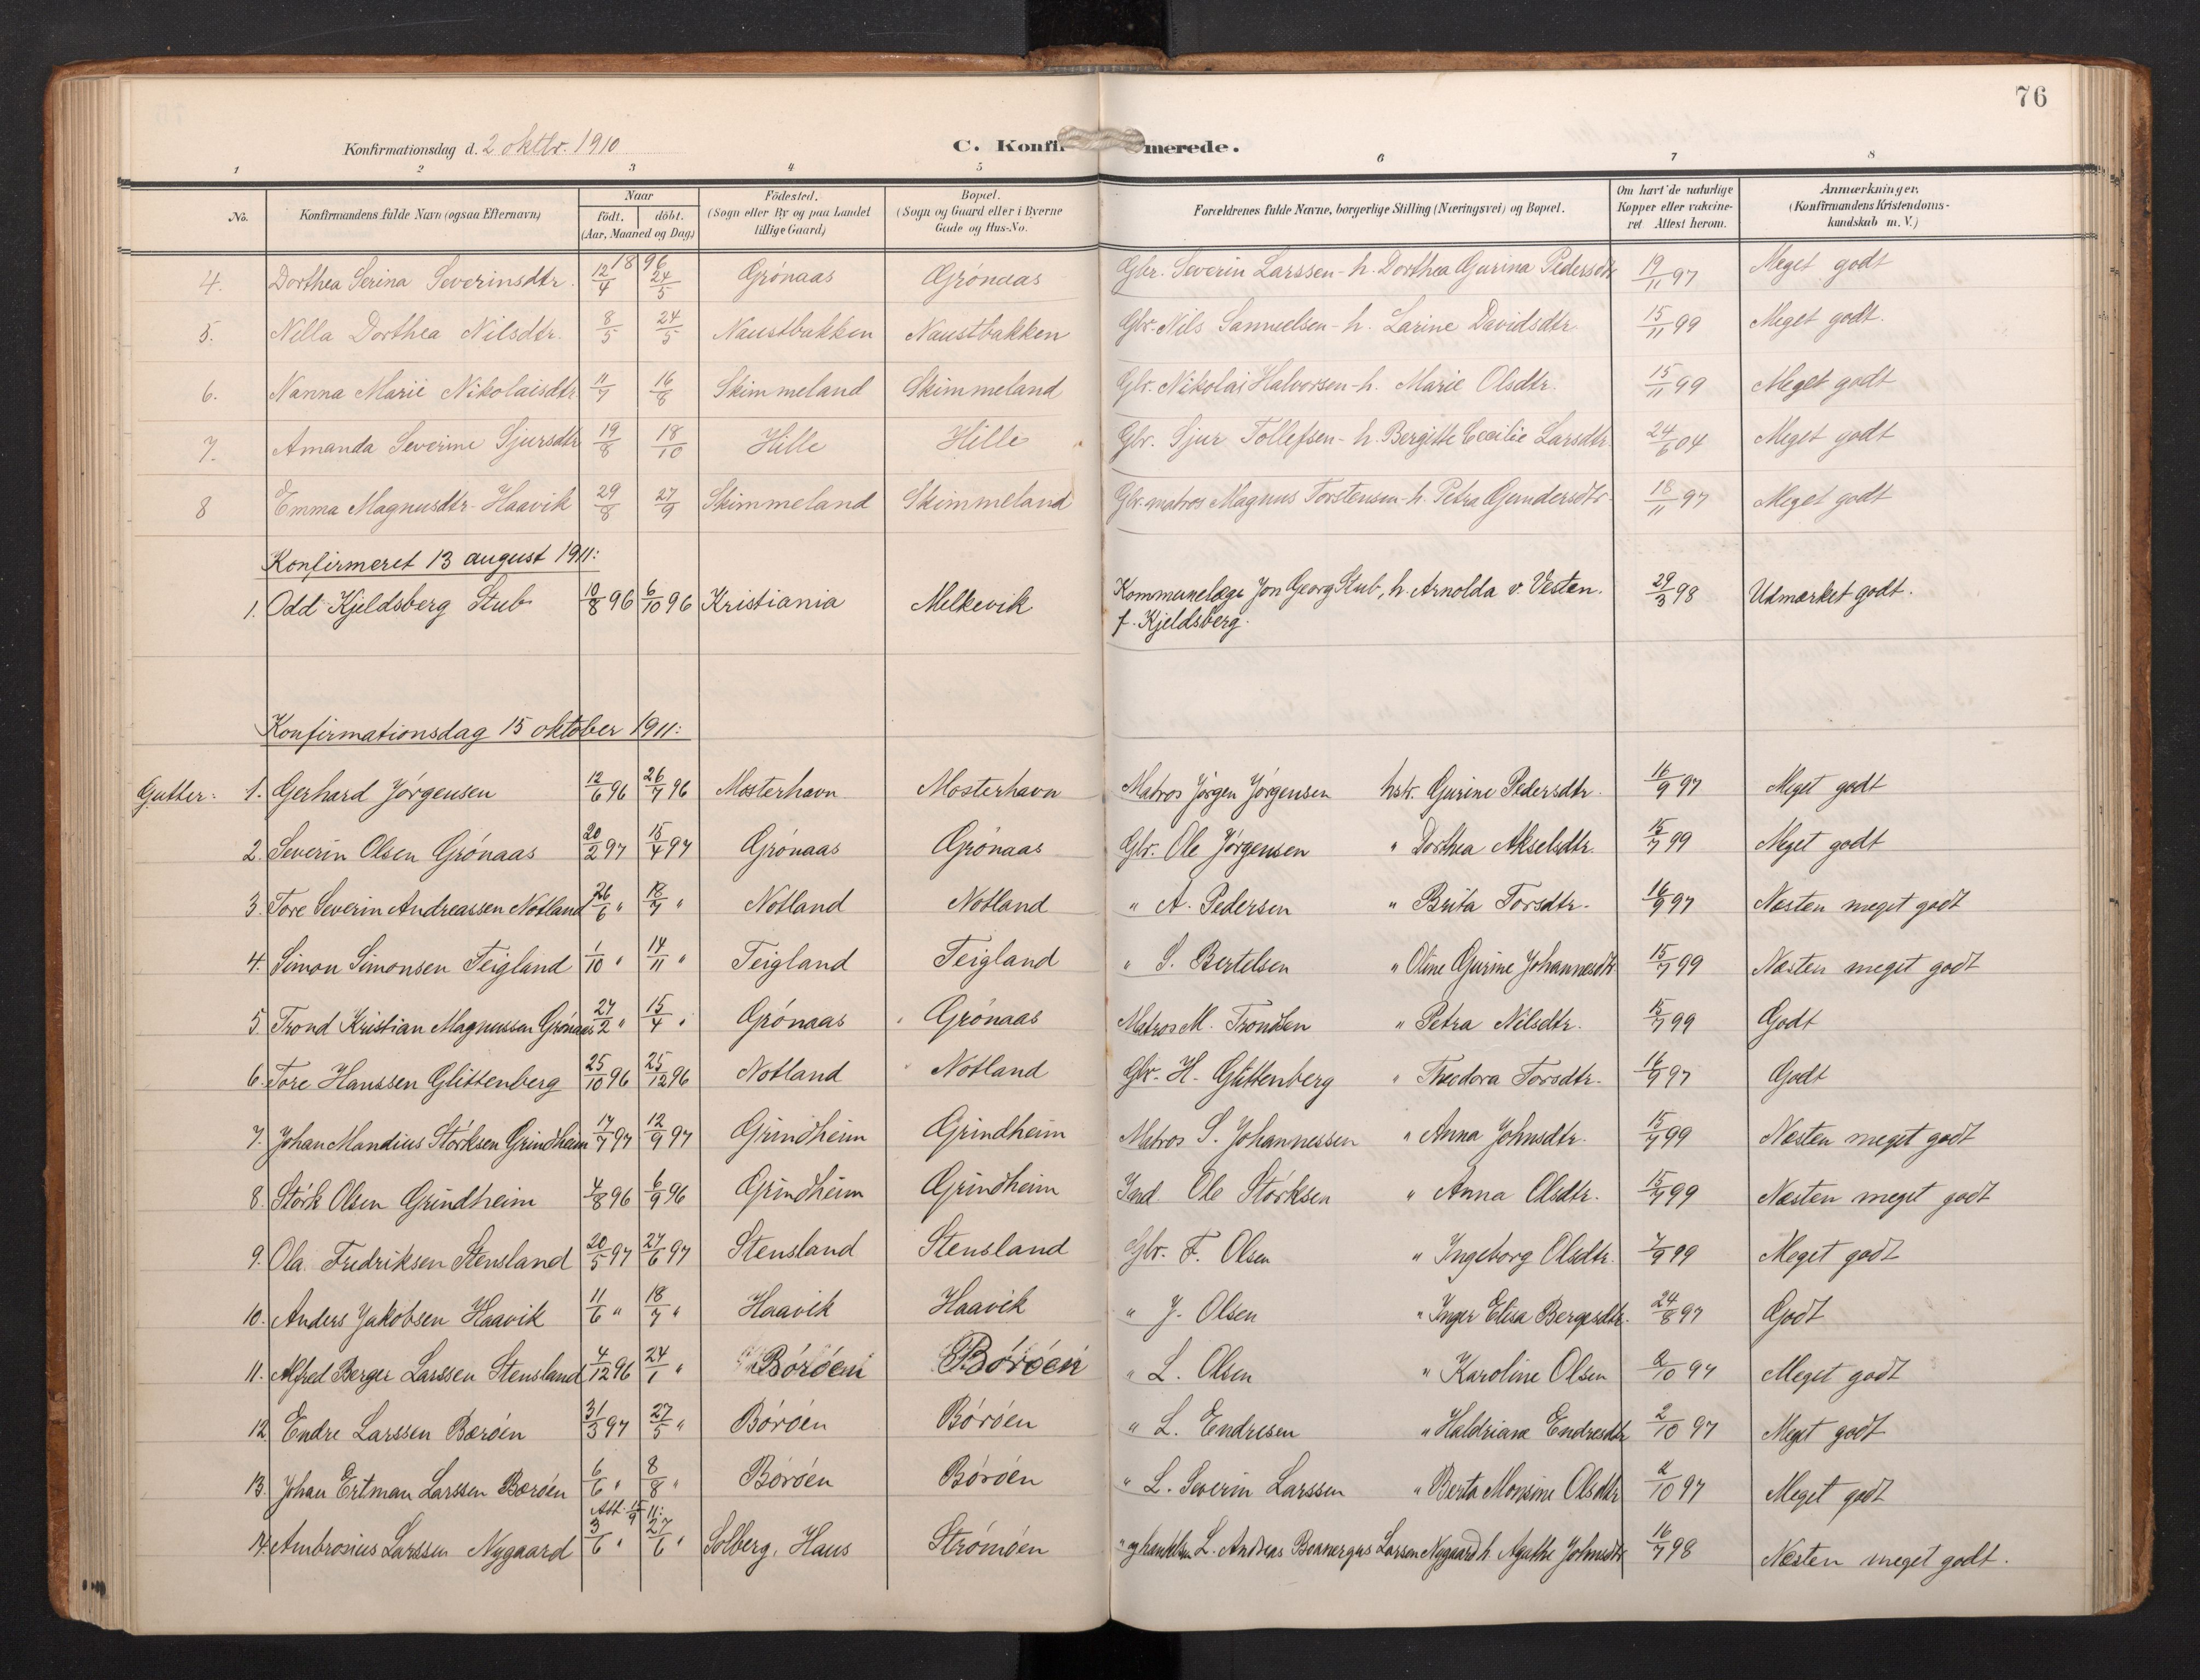 76
Konfirmationsdag d. 2 oktbr. 1910 C. Konfirmerede.
1 2 3 4 5 6 7 8
No. Konfirmandens fulde Navn (ogsaa Efternavn) Naar födt. döbt. (Aar, Maaned og Dag) Födested. (Sogn eller By og paa Landet tillige Gaard) Bopæl. (Sogn og Gaard eller i Byerne Gade og Hus-No. Forældrenes fulde Navne, borgerlige Stilling (Næringsvei) og Bopæl. Om havt de naturlige Kopper eller vakcineret Attest herom. Anmærkninger. (Konfirmandens Kristendomskundskab m. V.)
1896
4. Dorthea Serina Severinsdtr. 12/4 24/5 Grónaas Grónaas Gbr. Severin Larssen - h. Dorthea Gurina Pedersdtr 19/11 97 Meget godt
5. Nella Dorthea Nilsdtr. 8/5 24/5 Naustbakken Naustbakken Gbr. Nils Samuelsen - h. Larine Davidsdtr. 15/11 99 Meget godt.
6. Nanna Marie Nikolaisdtr. 11/7 16/8 Skimmeland Skimmeland Gbr. Nikolai Halvorsen - h. Marie Olsdtr. 15/11 99 Meget godt
7. Amanda Severine Sjursdtr 19/8 18/10 Hille Hille Gbr. Sjur Tollefsen - h. Bergitte Cecilie Larsdtr. 24/6 04 Meget godt
8 Emma Magnusdtr. Haavik 29/8 27/9 Skimmeland Skimmeland Gbr. matros Magnus Torstensen - h. Petra Gundersdtr. 18/11 97 Meget godt
Konfirmeret 13 august 1911:
1. Odd Kjeldsberg Stub 10/8 96 6/10 96 Kristiania Melkevik Kommunelæge Jon Georg Stub, h. Arnolda v. Vesten. 29/3 98 Udmærket godt.
f. Kjeldsberg.
Konfirmationsdag 15 oktober 1911:
Gutter: 1. Gerhard Jórgensen 12/6 96 26/7 96 Mosterhavn Mosterhavn Matros Jórgen Jórgensen hstr. Gurine Pedersdtr. 16/9 97 Meget godt
2. Severin Olsen Grónaas 20/2 97 15/4 97 Grónaas Grónaas Gbr. Ole Jórgensen " Dorthea Akselsdtr. 15/7 99 Meget godt
3. Tore Severin Andreassen Notland 26/6 " 18/7 " Notland Notland " A. Pedersen " Brita Torsdtr. 16/9 97 Næsten meget godt
4. Simon Simonsen Teigland 1/10 " 14/11 " Teigland Teigland " S. Bertelsen " Oline Gurine Johannesdtr 15/7 99 Næsten meget godt
5. Trond Kristian Magnussen Grónaas 27/2 " 15/4 " Grónaas Grónaas Matros M. Trondsen " Petra Nilsdtr. 15/7 99 Godt
6. Tore Hanssen Glittenberg 25/10 96 25/12 96 Notland Notland Gbr. H. Glittenberg " Theodora Torsdtr. 16/9 97 Godt
7. Johan Mandius Störksen Grindheim 17/7 97 12/9 97 Grindheim Grindheim Matros S. Johannessen " Anna Johnsdtr. 15/7 99 Næsten meget godt
8. Störk Olsen Grindheim 4/8 96 6/9 96 Grindheim Grindheim Ole Störksen " Anna Olsdtr. 15/7 99 Næsten meget godt
9. Ola Fredriksen Stensland 20/5 97 27/6 97 Stensland Stensland Gbr. F. Olsen " Ingeborg Olsdtr. 7/9 99 Meget godt
10. Anders Jakobsen Haavik 11/6 " 18/7 " Haavik Haavik " J. Olsen " Inger Elisa Bergesdtr. 24/8 97 Godt
11. Alfred Berger Larssen Stensland 4/12 96 24/1 " Böröen Böröen " L. Olsen " Karoline Olsen 2/10 97 Meget godt
12. Endre Larssen Bæröen 31/3 97 27/5 " Böröen Böröen " L. Endresen " Haldriane Endresdtr 2/10 97 Meget godt
13. Johan Ertman Larssen Bæröen 6/6 " 8/8 " Böröen Böröen " L. Severin Larssen " Berta Monsine Olsdtr 2/10 97 Meget godt
Att. 15/9 11:
14. Ambrosius Larssen Nygaard 3/6 " 27/6 " Solberg, Haus Strömöen " og handelsm. L. Andreas Boanerges Larsen Nygaard h. Agathe Johnsdtr 16/7 98 Næsten meget godt.